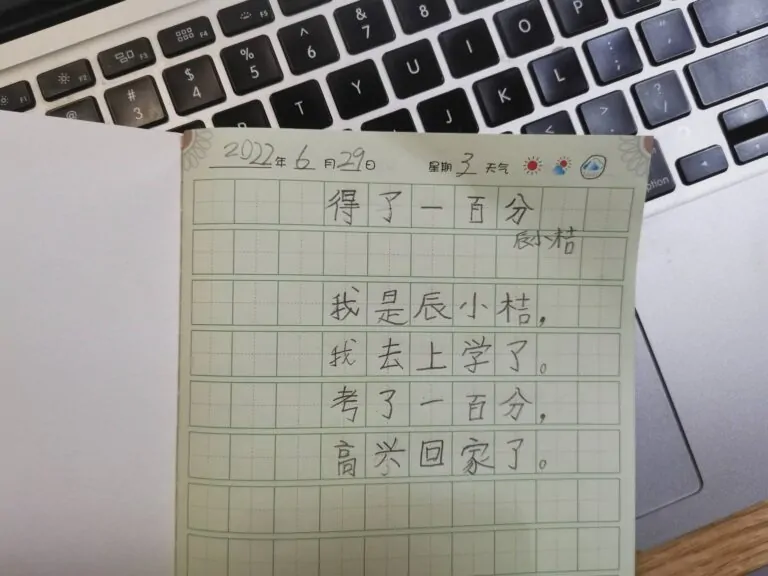 F2
F3
F4
F5
@
# 3
$ 4
% 5
^ 6
& 7
* 8
T Y U I O P
J K L
< ,
> .
? /
option
2022年6月29日 星期3 天气
得了一百分
辰小桔
我是辰小桔，
我去上学了。
考了一百分，
高兴回家了。